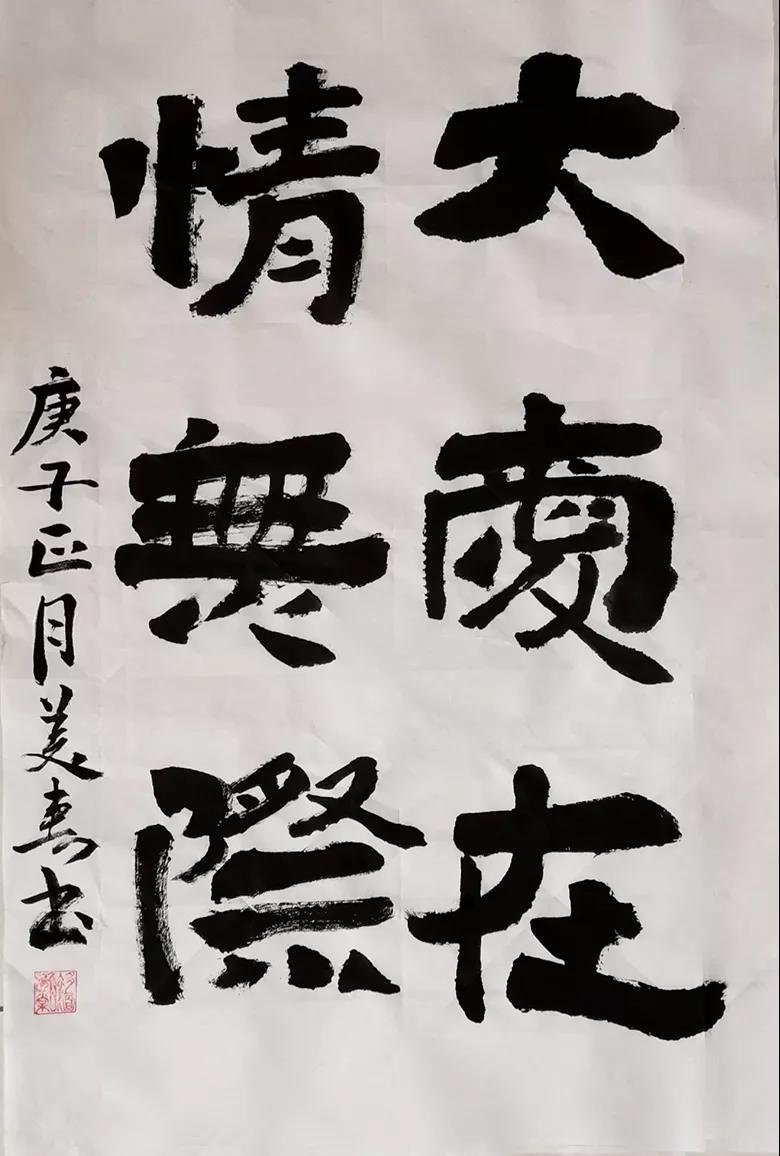 大愛在
情無際
庚子正月美春书